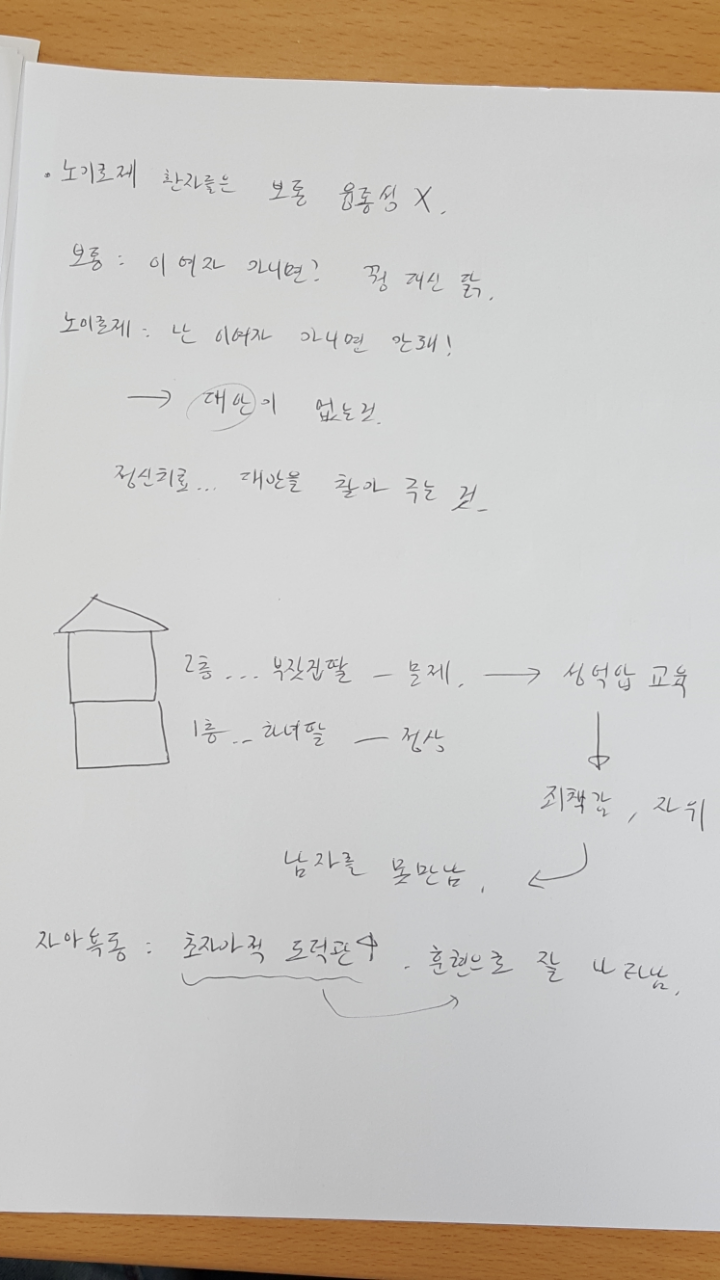 · 노기로제 환자들은 보통 융통성 X.
보통 : 이 여자 아니면? 꿩 대신 닭.
노이로제 : 난 이여자 아니면 안돼!
→ 대안이 없는것.
정신치료... 대안을 찾아 주는 것.
2층 ... 부잣집딸 — 문제. → 성억압 교육
1층 ... 하녀딸 — 정상
죄책감, 자위
남자를 못만남.
자아욕동 : 초자아적 도덕관↑. 훈련으로 잘 나타남.